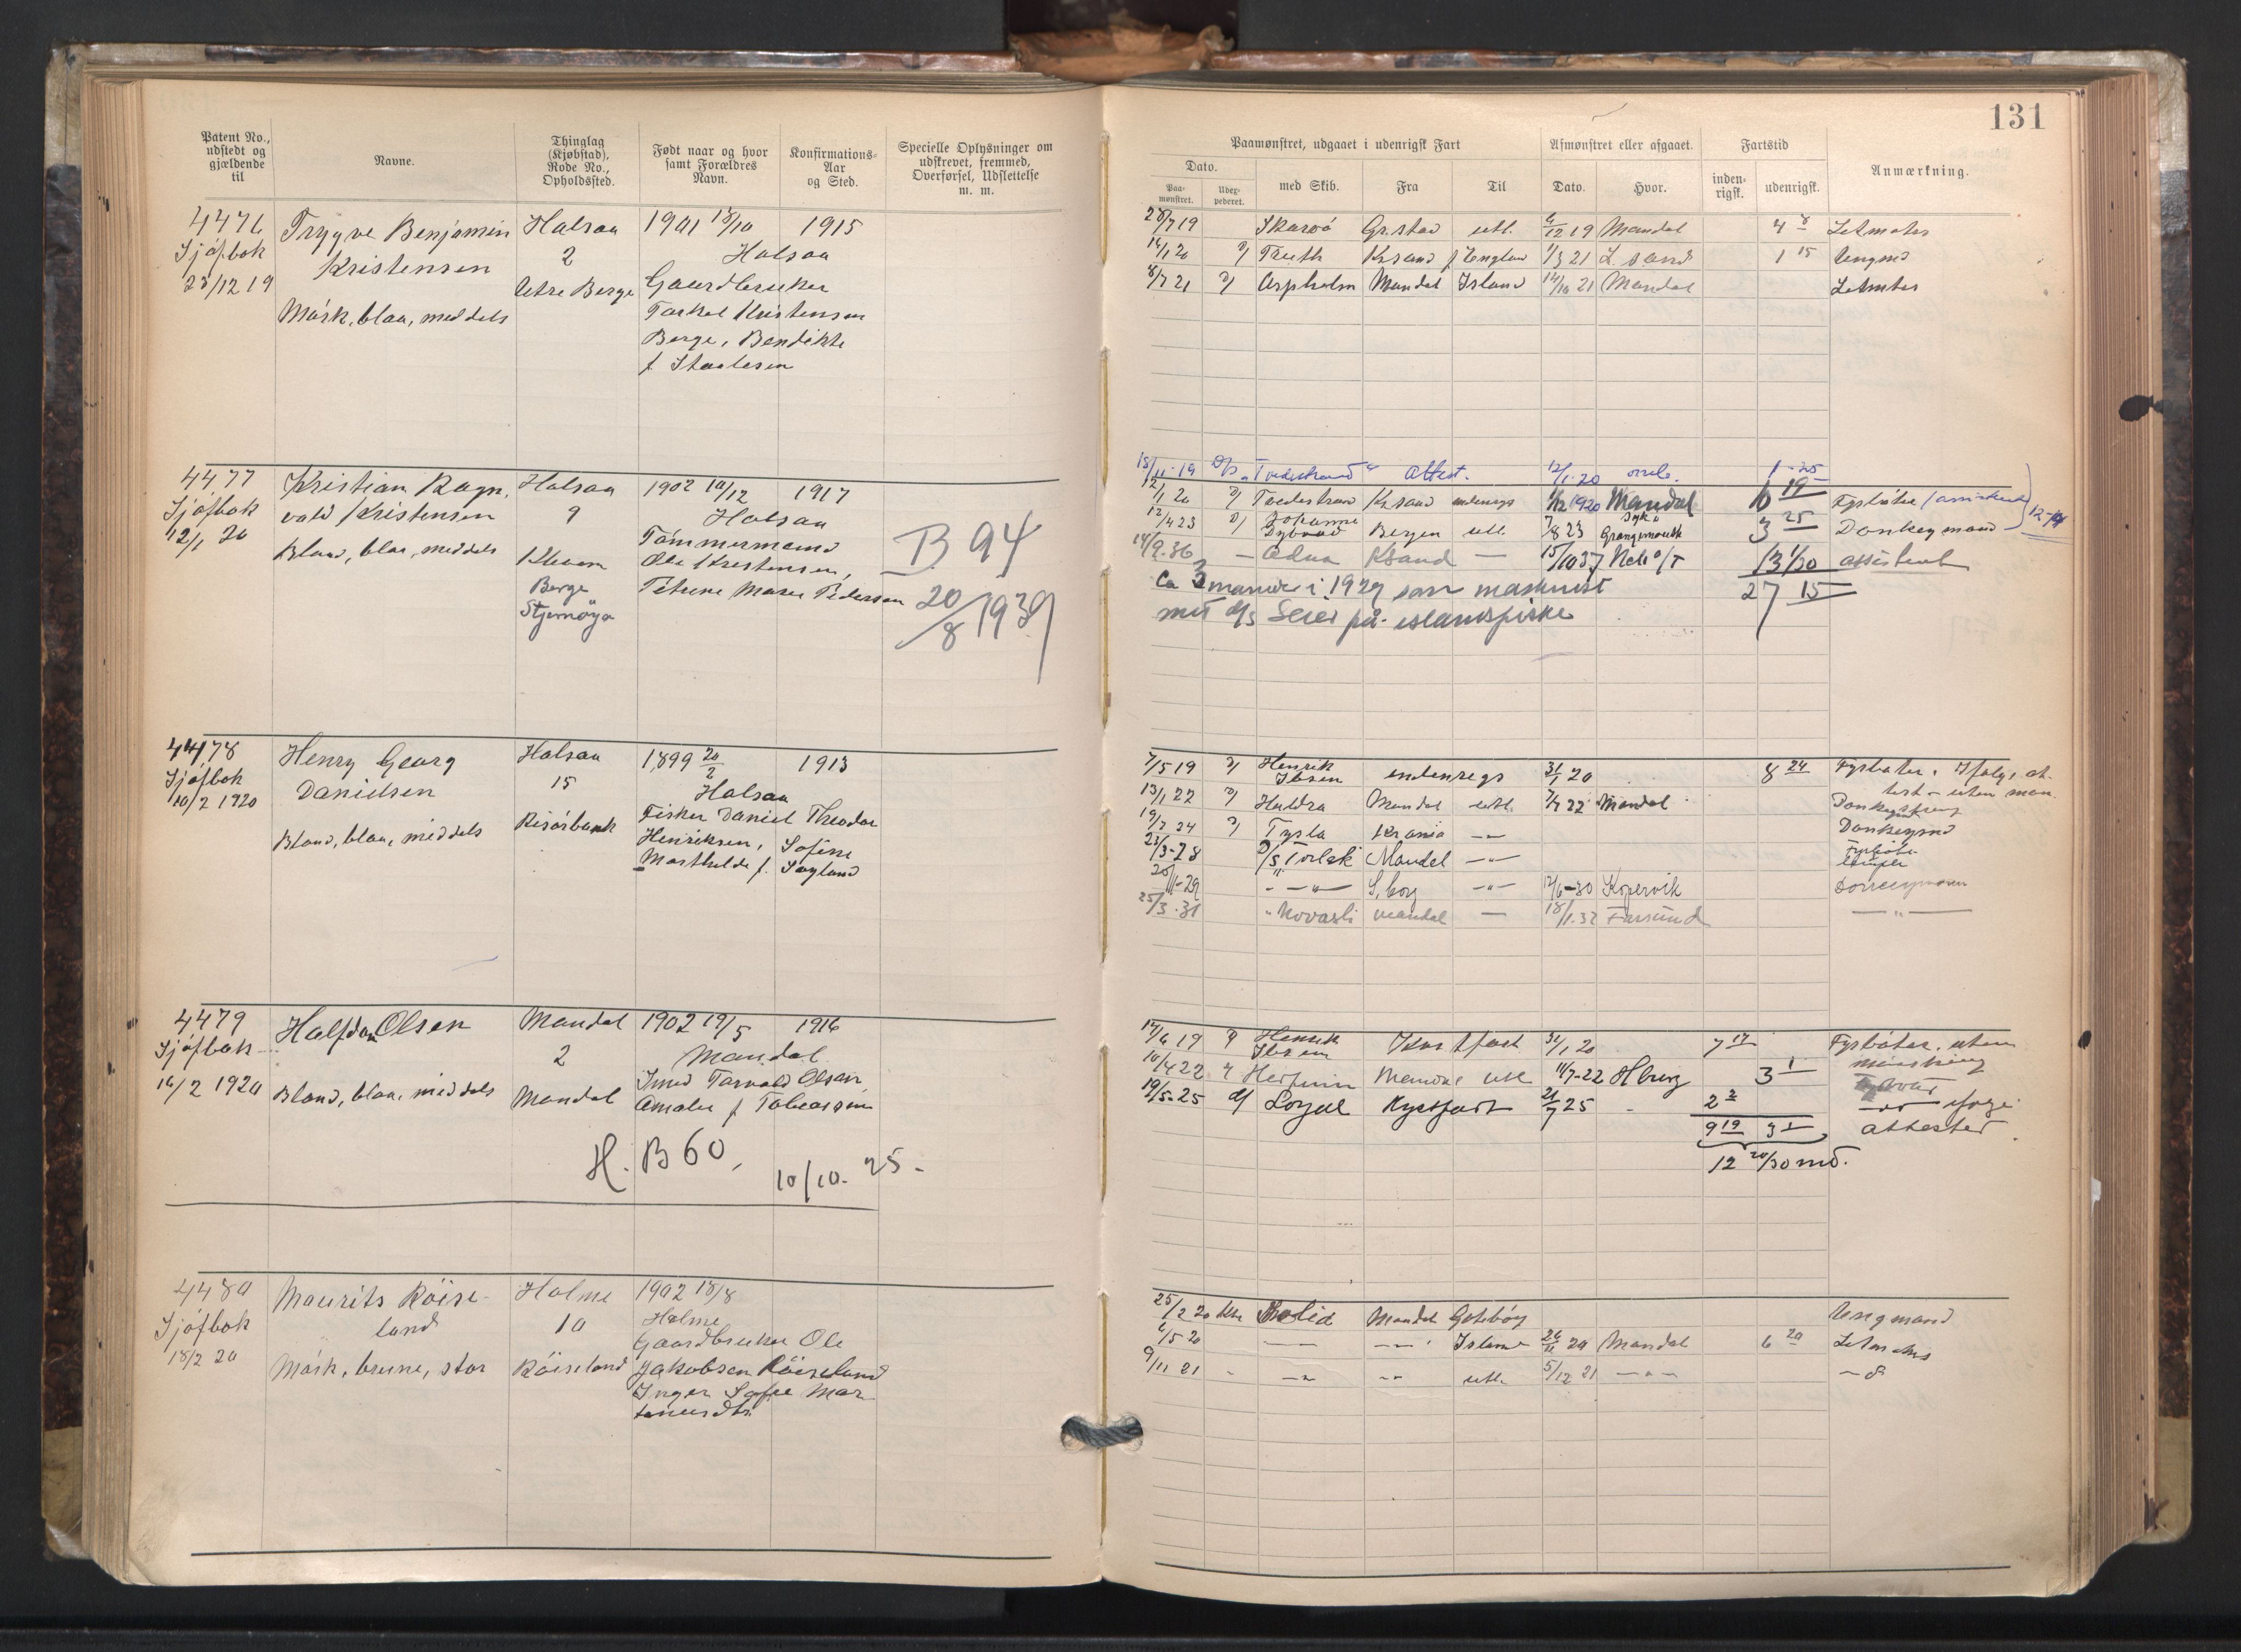 131
Patent No., udstedt og gjældende til
Navne.
Thinglag (Kjøbstad), Rode No., Opholdssted.
Født naar og hvor samt Forældres Navn.
Konfirmations-Aar og Sted.
Specielle Oplysninger om udskrevet, fremmed, Overførsel, Udslettelse m. m.
Paamønstret, udgaaet i udenrigsk Fart
Afmønstret eller afgaaet.
Fartstid
Anmærkning.
Dato.
Paa-mønstret.
Udex-pederet.
med Skib.
Fra
Til
Dato.
Hvor.
inden-rigsk.
udenrigsk.
4476 Trygve Benjamin Halsaa 1901 13/10 1915
Sjøfbok Kristensen 2 Halsaa
23/12 19 Utre Berge Gaardbruker
Mørk, blaa, meddels Tarkel Kristensen
Berge, Bendikte
f. Staalesen
28/7 19 Skarvø Gr.stad utl. 6/12 19 Mandal 4 8 Letmatros
Truth Krsand England 1/3 21 1 15 Ungmd
8/7 21 Aspholm Mandal Island 14/10 21 Mandal Letmtos
4477 Kristian Ragn. Halsaa 1902 10/12 1917
Sjøfbok vald Kristensen 9 Halsaa
12/1 20 Tømmermand
Bland, blaa, meddels Kleven Ole Kristensen,
Berge Petrine Maren Pedersen
Stjernøya
B 94
20/8 1939
15/11-19 D/S "Tvedestrand" Attest. 12/1.20 1 25
12/1 20 Tvedestrand Krsand indenrigs 1920 Mandal 6 19 Fyrbøter / assistent 12-14
12/4 23 Johanne Dybwad Bergen utl. 7/8 23 Syk i Grangemouth 3 25 Donkeymand
14/9.36 Edna Ksand 15/10 37 13 1/30 assistent
Ca 3 maander i 1927 som maskinist 27 15
met d/s Seier på islandsfiske
4478 Henry Georg Halsaa 1899 20/2 1913
Sjøfbok Danielsen 15 Halsaa
10/2 1920 Risørbank Fisker Daniel Theodor
Bland, blaa, meddels Henriksen, Sofine
Marthilde f. Søyland
7/5 19 Henrik Ibsen indenrigs 31/1 20 8 24 Fyrbøter. Ifølg. at-
test - uten møn.
13/1 22 Huldra Mandal utl. 7/4 22 Mandal
19/7 24 Tysla Krania Donkeymd
23/3-28 D/S Torlak Mandal
20/11-29 S.borg 12/6-30 Kopervik Donkeymann
25/3.31 "Novasli Mandal 18/1.32 Farsund
4479 Halfdan Olsen Mandal 1902 19/5 1916
Sjøfbok 2 Mandal
16/2 1920 Bland, blaa, meddels Mandal Smed Tarvald Olsen,
Amalie f. Tobiassen
H. B 60, 10/10. 25.
17/6 19 Henrik Ibsen Kystfart 31/1 20 7 17 Fyrbøter. uten
mønstring
10/4 22 Mandal utl 11/7-22 Hburg 3 1
19/5-25 d/ Loyal Kystfart 21/7 25 2 2 ifølge
9 19 3 1 attester
12 20/30 md.
4480 Maurits Røise- Holme 1902 18/8
Sjøfbok land 10 Holme
18/2 20 Gaardbruker Ole
Mørk, brune, stor Røiseland Jakobsen Røiseland
Inger Sofie Mar-
tinusdtr.
25/2 20 Bolid Mandal Gøteborg Ungmand
6/5 20 Island Mandal 6 20 Letmatros
9/11 21 utl. 5/12 21